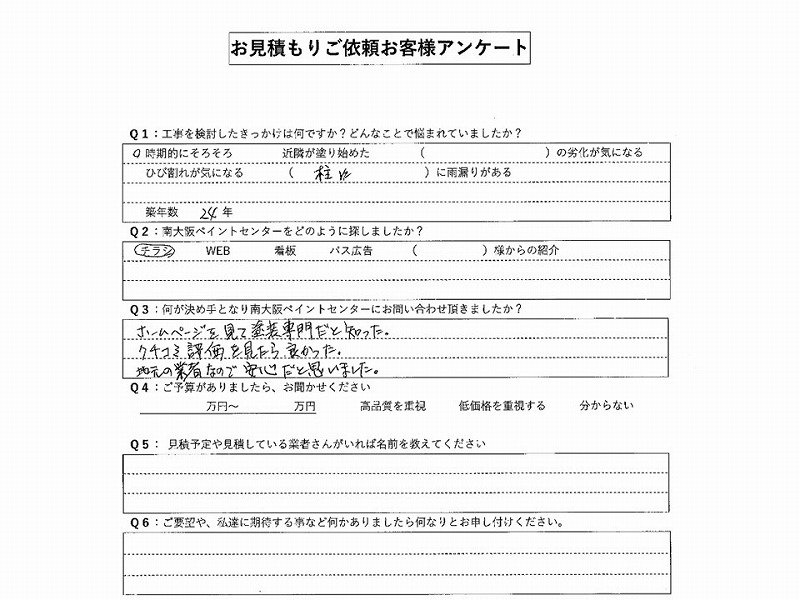 お見積もりご依頼お客様アンケート
Q1：工事を検討したきっかけは何ですか？どんなことで悩まれていましたか？
時期的にそろそろ 近隣が塗り始めた （ ）の劣化が気になる
ひび割れが気になる （ 柱 ）に雨漏りがある
築年数 24 年
Q2：南大阪ペイントセンターをどのように探しましたか？
チラシ WEB 看板 バス広告 （ ）様からの紹介
Q3：何が決め手となり南大阪ペイントセンターにお問い合わせ頂きましたか？
ホームページを見て塗装専門だと知った。
クチコミ評価を見たら良かった。
地元の業者なので安心だと思いました。
Q4：ご予算がありましたら、お聞かせください
万円〜 万円 高品質を重視 低価格を重視する 分からない
Q5： 見積予定や見積している業者さんがいれば名前を教えてください
Q6：ご要望や、私達に期待する事など何かありましたら何なりとお申し付けください。